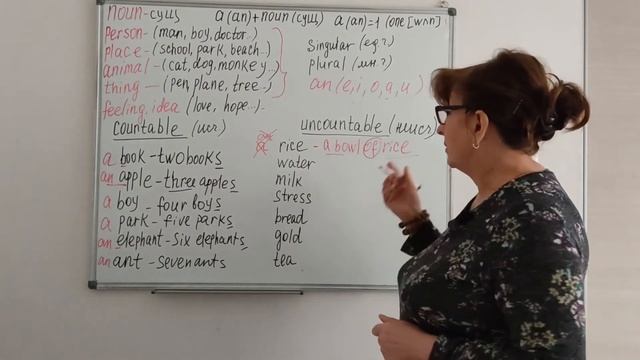 noun-сущ a(an)+noun(сущ) a(an)=1 (one [wʌn]
person-(man, boy, doctor..)
place-(school, park, beach..)
animal-(cat, dog, monkey..)
thing-(pen, plane, tree..)
feeling, idea (love, hope..)
Singular (ед.ч)
Plural (мн.ч)
an (e, i, o, a, u)
countable (исч)
a book-two books
an apple-three apples
a boy-four boys
a park-five parks
an elephant-six elephants
an ant-seven ants
uncountable (неисч)
rice - a bowl of rice
water
milk
stress
bread
gold
tea